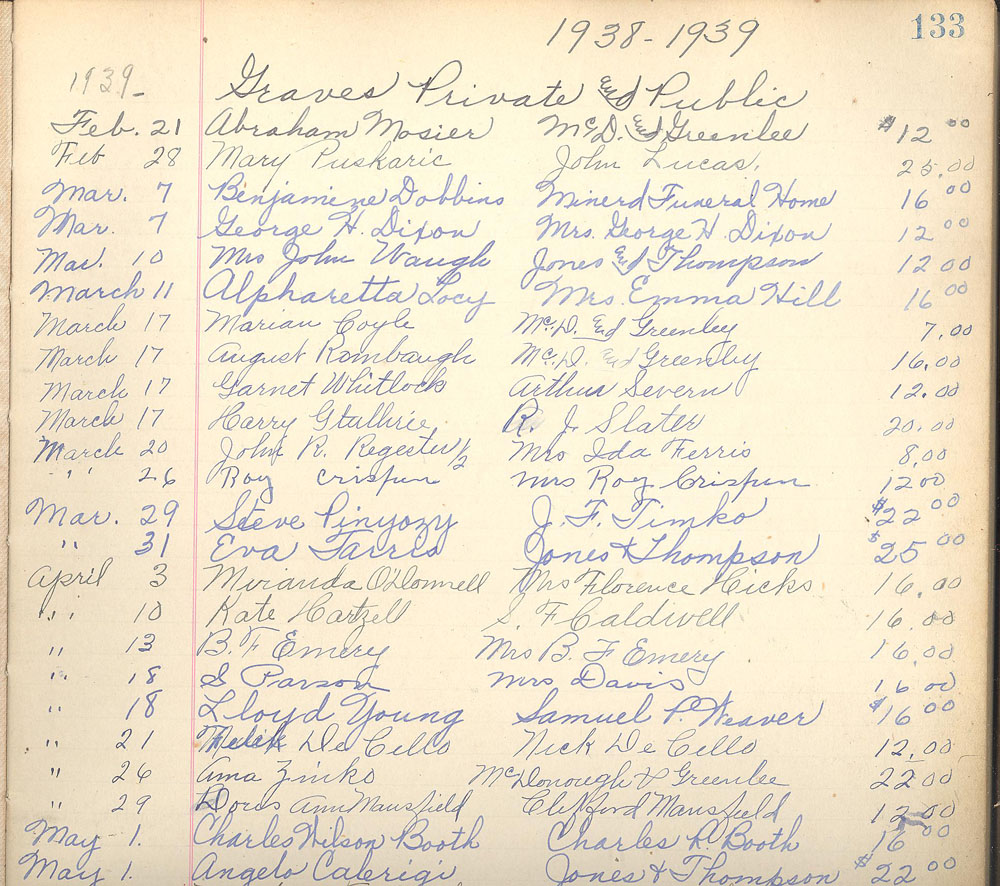 133
1938-1939
1939-
Graves Private and Public
Feb. 21 Abraham Mosier McD. and Greenlee $12 00
Feb 28 Mary Puskaric John Lucas. 25.00
Mar. 7 Benjamine Dobbins Minerd Funeral Home 16 00
Mar. 7 George H. Dixon Mrs. George H. Dixon 12 00
Mar. 10 Mrs John Waugh Jones and Thompson 12 00
March 11 Alpharetta Locy Mrs. Emma Hill 16 00
March 17 Marian Coyle McD. and Greenley 7.00
March 17 August Rombaugh McD. and Greenley 16.00
March 17 Garnet Whitlock Arthur Severn 12.00
March 17 Harry Gtullrie R. J. Slater 20.00
March 20 John R. Regester 1/2 Mrs Ida Ferris 8.00
" 26 Roy Crispun Mrs Roy Crispun 12 00
Mar. 29 Steve Pinyozy J. F. Timko $22 00
" 31 Eva Farris Jones & Thompson $25 00
April 3 Miranda O'Donnell Mrs Florence Hicks 16.00
" 10 Kate Hartzell S. F Caldwell 16.00
" 13 B. F Emery Mrs B. F Emery 16.00
" 18 S Parson Mrs Davis 16 00
" 18 Lloyd Young Samuel P. Weaver $16 00
" 21 De Cello Nick De Cello 12.00
" 26 Anna Zinko McDonough & Greenlee 22 00
" 29 Doras Ann Mansfield Clifford Mansfield 12 00
May - 1. Charles Wilson Booth Charles R. Booth 16 00
May 1. Angelo Caberigi Jones & Thompson $22 00